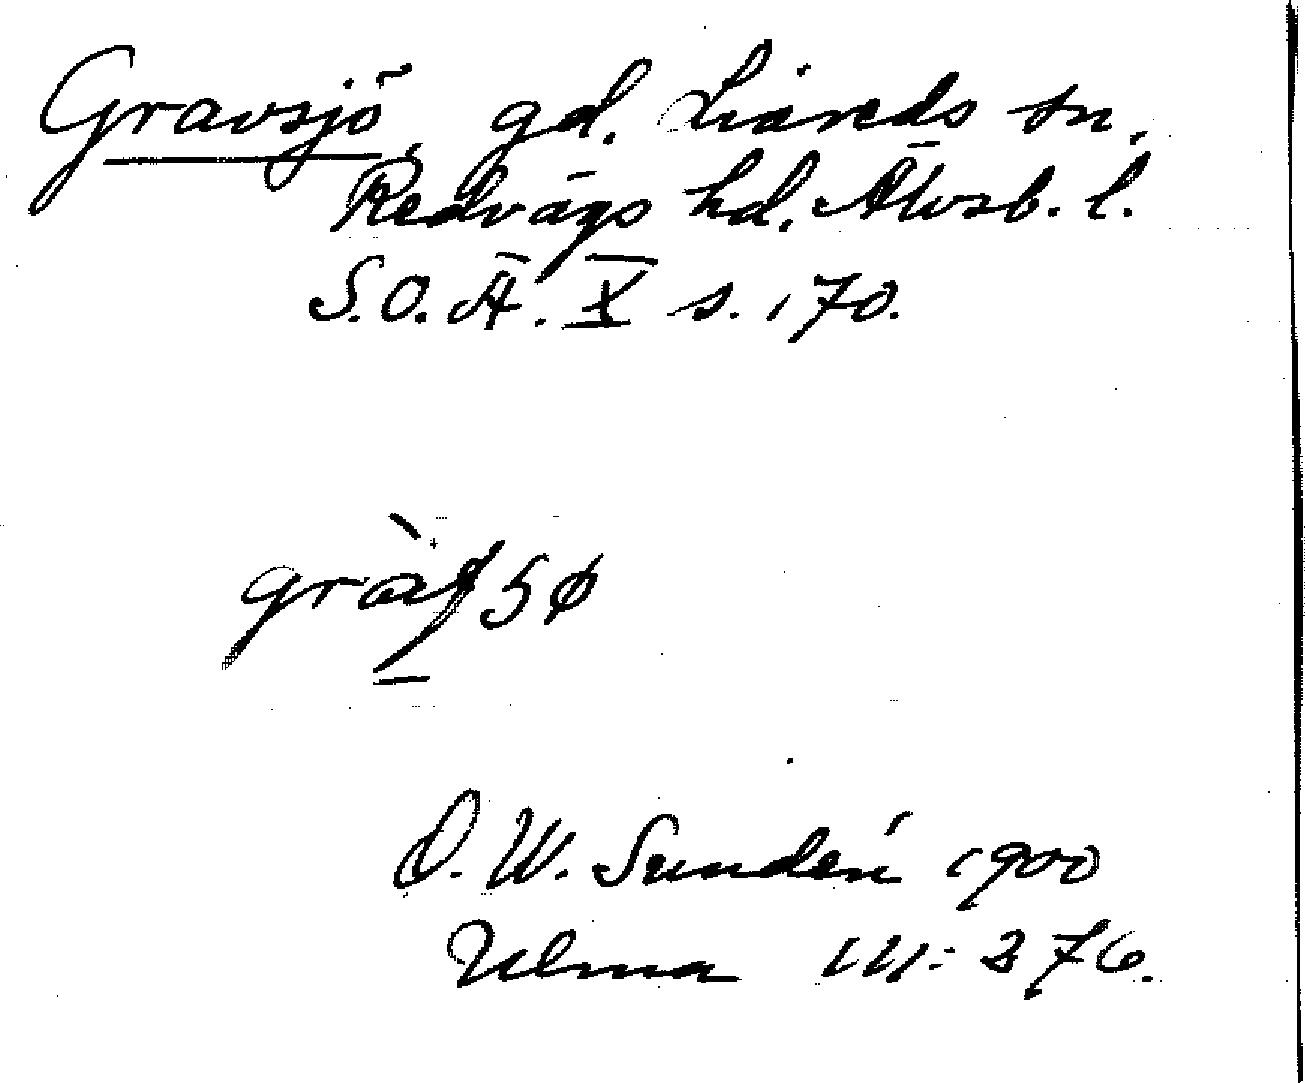 Gravsjö, gd. Liareds sn,
Redvägs hd. Älvsb. l.
S.O.Ä. X s. 170.
O. W. Sundén 1900
Ulma 111:276.